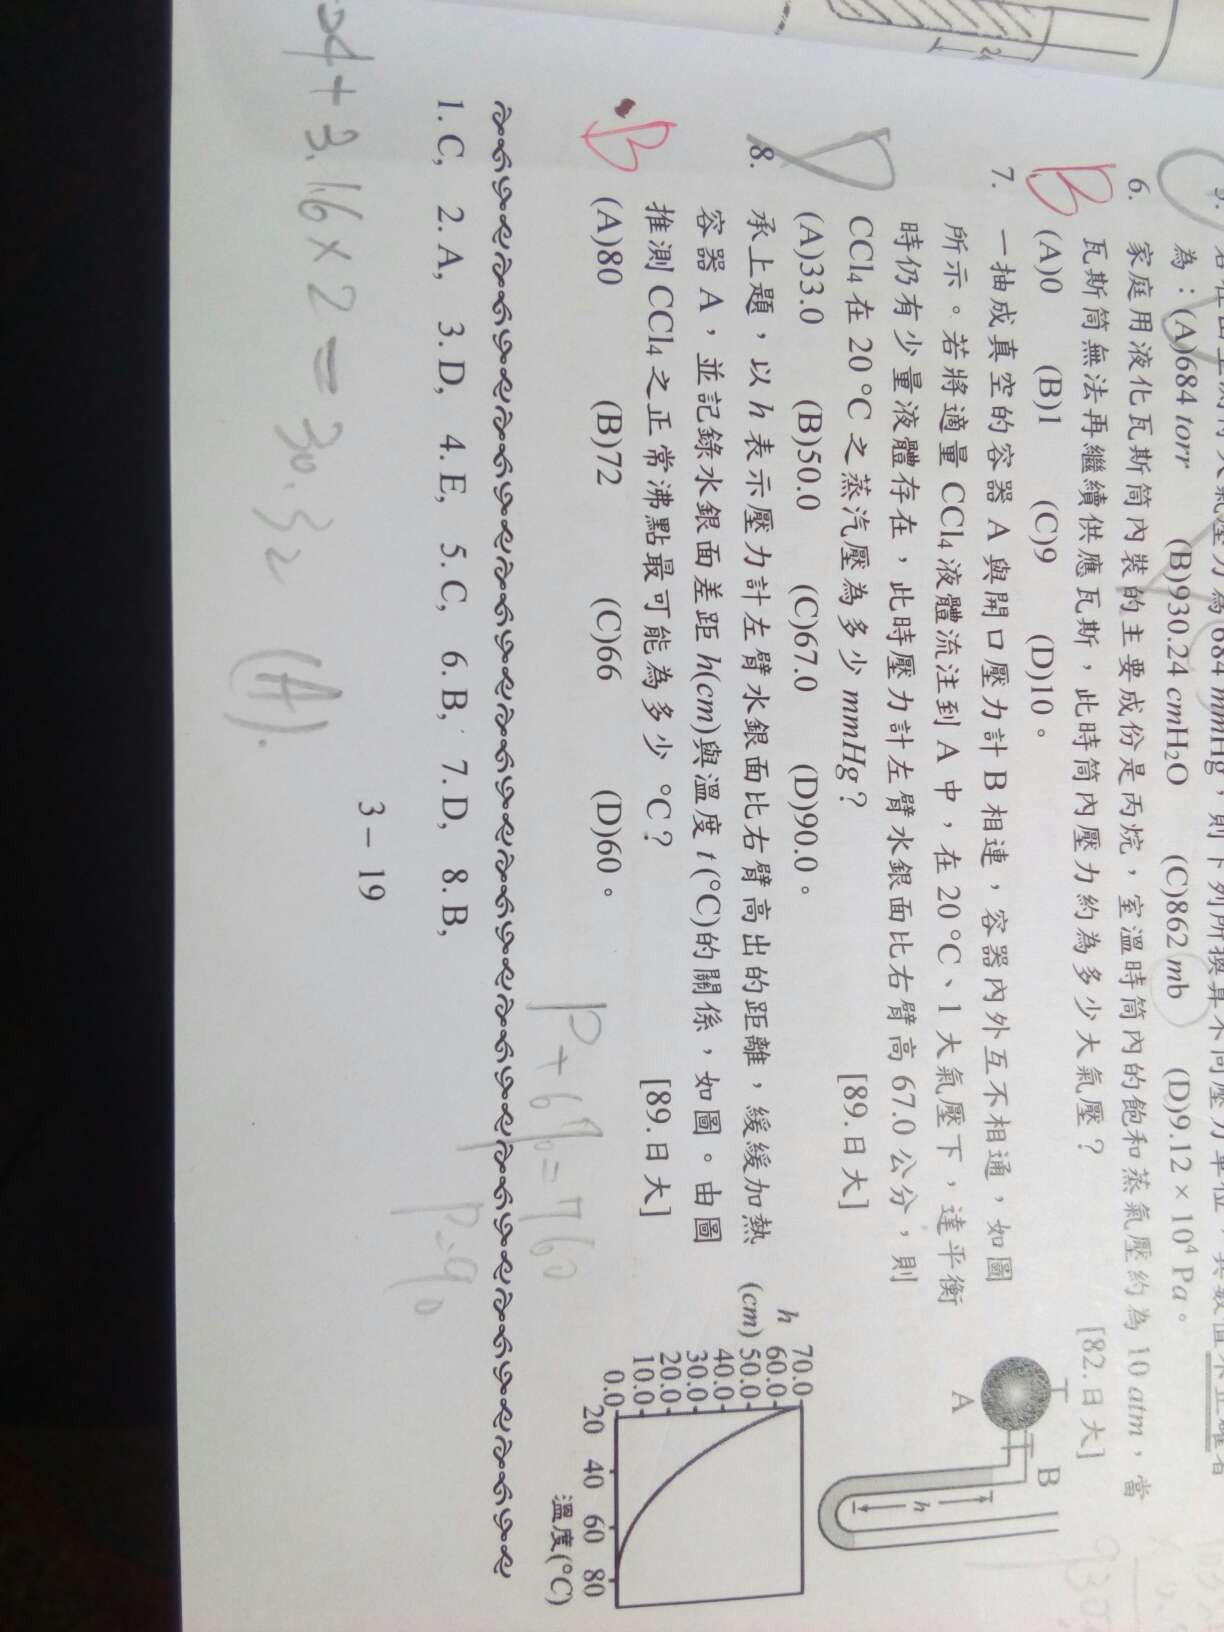 為：(A)684 torr (B)930.24 cmH₂O (C)862 mb (D)9.12 × 10⁴ Pa。
6. 家庭用液化瓦斯筒內裝的主要成份是丙烷，室溫時筒內的飽和蒸氣壓約為 10 atm，當
瓦斯筒無法再繼續供應瓦斯，此時筒內壓力約為多少大氣壓？ [82.日大]
B
(A)0 (B)1 (C)9 (D)10。
7. 一抽成真空的容器 A 與開口壓力計 B 相連，容器內外互不相通，如圖
所示。若將適量 CCl₄ 液體流注到 A 中，在 20 °C、1 大氣壓下，達平衡
時仍有少量液體存在，此時壓力計左臂水銀面比右臂高 67.0 公分，則
CCl₄ 在 20 °C 之蒸汽壓為多少 mmHg？ [89.日大]
D
(A)33.0 (B)50.0 (C)67.0 (D)90.0。
A
B
h
8. 承上題，以 h 表示壓力計左臂水銀面比右臂高出的距離，緩緩加熱
容器 A，並記錄水銀面差距 h(cm)與溫度 t (°C)的關係，如圖。由圖
推測 CCl₄ 之正常沸點最可能為多少 °C？ [89.日大]
B
(A)80 (B)72 (C)66 (D)60。
h
(cm)
70.0
60.0
50.0
40.0
30.0
20.0
10.0
0.0
20 40 60 80
溫度(°C)
P+670=760
P=90
1. C, 2. A, 3. D, 4. E, 5. C, 6. B, 7. D, 8. B,
3 – 19
+ 3.16 × 2 = 30.32 (A).